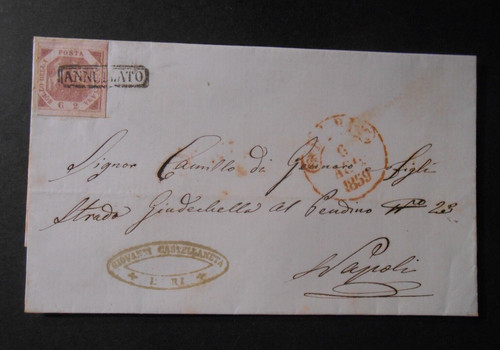 POSTA
NAPOLETANA
G 2
ANNULLATO
6
1859
Signor Camillo di Gennaro e Figli
Strada Giudechella al Pendino No 23
Napoli
GIOVANNI CASTELLANETA
BARI